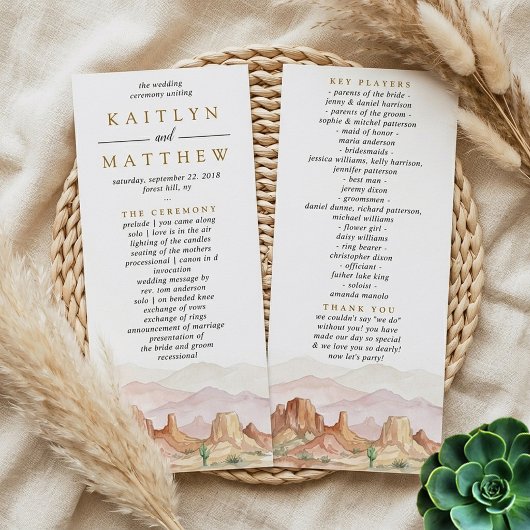 the wedding
ceremony uniting
KAITLYN
and
MATTHEW
saturday, september 22. 2018
forest hill, ny
...
THE CEREMONY
prelude | you came along
solo | love is in the air
lighting of the candles
seating of the mothers
processional | canon in d
invocation
wedding message by
rev. tom anderson
solo | on bended knee
exchange of vows
exchange of rings
announcement of marriage
presentation of
the bride and groom
recessional
KEY PLAYERS
- parents of the bride -
jenny & daniel harrison
- parents of the groom -
sophie & mitchel patterson
- maid of honor -
maria anderson
- bridesmaids -
jessica williams, kelly harrison,
jennifer patterson
- best man -
jeremy dixon
- groomsmen -
daniel dunne, richard patterson,
michael williams
- flower girl -
daisy williams
- ring bearer -
christopher dixon
- officiant -
father lake king
- soloist -
amanda manolo
THANK YOU
we couldn't say "we do"
without you! you have
made our day so special
& we love you so dearly!
now let's party!